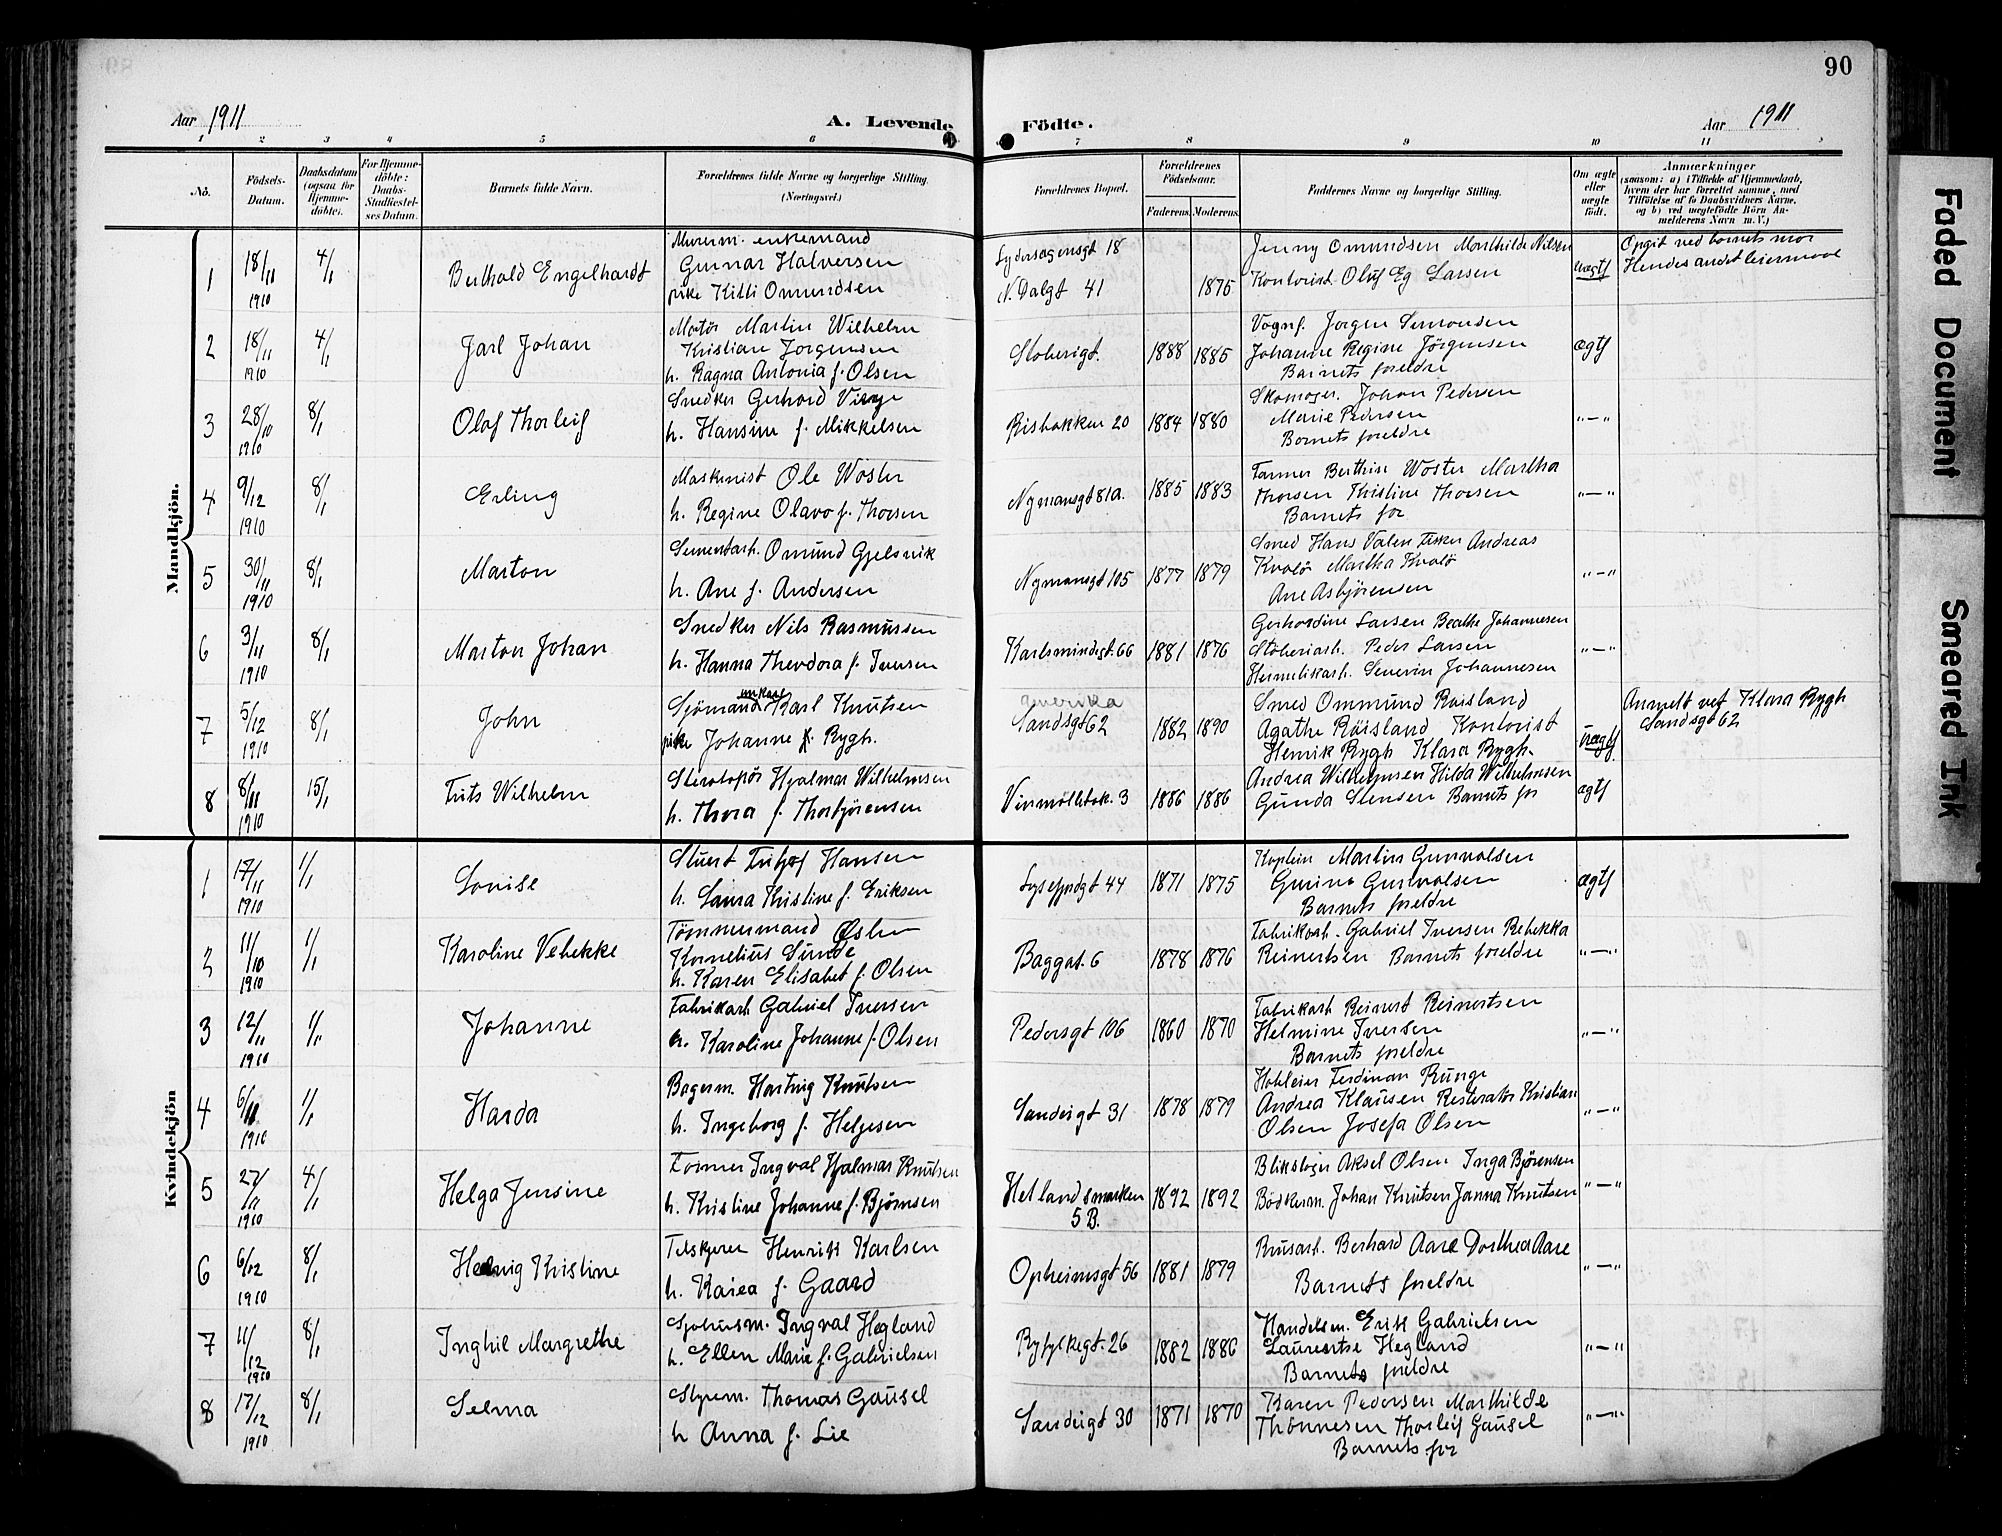 90
Aar 1911
A. Levende Födte.
Aar 1911
1 2 3 4 5 6 7 8 9 10 11
No.
Födsels-Datum.
Daabsdatum (ogsaa for Hjemme-döbte).
For Hjemme-döbte: Daabs-Stadfæstel-ses Datum.
Barnets fulde Navn.
Forældrenes fulde Navne og borgerlige Stilling. (Næringsvei.)
Forældrenes Bopæl.
Forældrenes Födselsaar.
Faderens. Moderens.
Faddernes Navne og borgerlige Stilling.
Om ægte eller uægte födt.
Anmærkninger
(saasom: a) i Tilfælde af Hjemmedaab, hvem der har forrettet samme, med Tilföielse af to Daabsvidners Navne, og b) ved uægtefödte Börn An-melderens Navn m. V.)
Mandkjön.
1 18/11 1910 4/1 Berthold Engelhardt
Murerm. enkemand
Gunnar Halvorsen
pike Kitti Omundsen
Sydersagensgt 18
N. Dalgt 41 1875
Jenny Omundsen Marthilde Nilsen
Kontorist Oluf Eg Larsen
uægtf
Opgit ved barnets mor
Hendes andet leiermaal
2 18/11 1910 4/1 Jarl Johan
Matös Martin Wilhelm
Kristian Jørgensen
h. Ragna Antonia f. Olsen
Støberigt. 1888 1885
Vognf. Jørgen Simonsen
Johanne Regine Jørgensen
Barnets foreldre
ægtf
3 28/10 1910 8/1 Olaf Thorleif
Snedker Gerhard Viege
h. Hansine f. Mikkelsen
Risbakken 20 1884 1880
Skomager. Johan Pedersen
Marie Pedersen
Barnets foreldre
"—"
4 9/12 1910 8/1 Erling
Maskinist Ole Woster
h. Regine Olava f. Thorsen
Nymansgt 81a. 1885 1883
Farmer Berthine Woster Martha
Thorsen Kristine Thorsen
Barnets for
"—"
5 30/11 1910 8/1 Marton
Sementarb. Omund Gjelsvik
h. Ane f. Andersen
Nymansgt 105 1877 1879
Smed Hans Valen Fisker Andreas
Kvalø Martha Kvalø
Ane Asbjörensen
"—"
6 3/11 1910 8/1 Marton Johan
Snedker Nils Rasmussen
h. Hanna Theodora f. Iversen
Karlsmindegt. 66 1881 1876
Gerhardine Larsen Beathe Johannesen
Støberiarb. Peder Larsen
Hermetikarb. Severin Johannesen
"—"
7 5/12 1910 8/1 John
Sjömand unkarl Karl Knutsen
pike Johanne Rygh.
amerika
Sandsgt 62 1882 1890
Smed Ommund Raisland
Agathe Raisland Kontorist
Henrik Rygh Klara Rygh.
uægtf.
Anmelt vet Klara Rygh
Sandsgt 62
8 8/11 1910 15/1 Frits Wilhelm
Sterotopör Hjalmar Wilhelmsen
h. Thora f. Thorbjörensen
Vinmöllebak. 3 1886 1886
Andrea Wilhelmsen Hilda Wilhelmsen
Gunda Stensen Barnets for
ægtf
Kvindekjön
1 17/11 1910 1/1 Lovise
Stuert Fritjof Hansen
h. Laura Kristine f. Eriksen
Lysefjordgt 44 1871 1875
Kaptein Martin Gunvalsen
Gurine Gunvalsen
Barnets foreldre
ægtf
2 11/10 1910 1/1 Karoline Vebekke
Tömmermand Østen
Kornelius Sunde
h. Karen Elisabet f. Olsen
Baggat. 6 1878 1876
Fabrikarb. Gabriel Iversen Rebekka
Reinertsen Barnets foreldre
"—"
3 12/11 1910 1/1 Johanne
Fabrikarb Gabriel Iversen
h. Karoline Johanne f. Olsen
Pedersgt 106 1860 1870
Fabrikarb Reinert Reinertsen
Helmine Iversen
Barnets foreldre
"—"
4 6/11 1910 1/1 Harda
Bagerm. Hartvig Knutsen
h. Ingeborg f. Helgesen
Sandeigt 31 1878 1879
Hotfeier Ferdinan Runge
Andrea Klausen Restoratør Kristian
Olsen Josefa Olsen
"—"
5 27/11 1910 4/1 Helga Jensine
Former Ingval Hjalmar Knutsen
h. Kristine Johanne f. Bjørnsen
Hetlandsmarken 5 B. 1892 1892
Blikslager Aksel Olsen Inga Bjørensen
Bødkerm. Johan Knutsen Janna Knutsen
"—"
6 6/12 1910 8/1 Hedvig Kristine
Filskjerer Henrik Karlsen
h. Kaiea f. Gaard
Opheimsgt 56 1881 1879
Brusarb. Berhard Aare Dorthea Aare
Barnets foreldre
"—"
7 11/12 1910 8/1 Inghil Margrethe
Spehusm. Ingval Hegland
h. Ellen Marie f. Gabrielsen
Ryfylkegt. 26 1882 1886
Handelsm. Erik Gabrielsen
Laurentse Hegland
Barnets foreldre
"—"
8 17/12 1910 8/1 Selma
Styrem. Thomas Gausel
h Anna f. Lie
Sandeigt 30 1871 1870
Karen Pedersen Marthilde
Thønnesen Thorleif Gausel
Barnets for
"—"
Faded Document
Smeared Ink